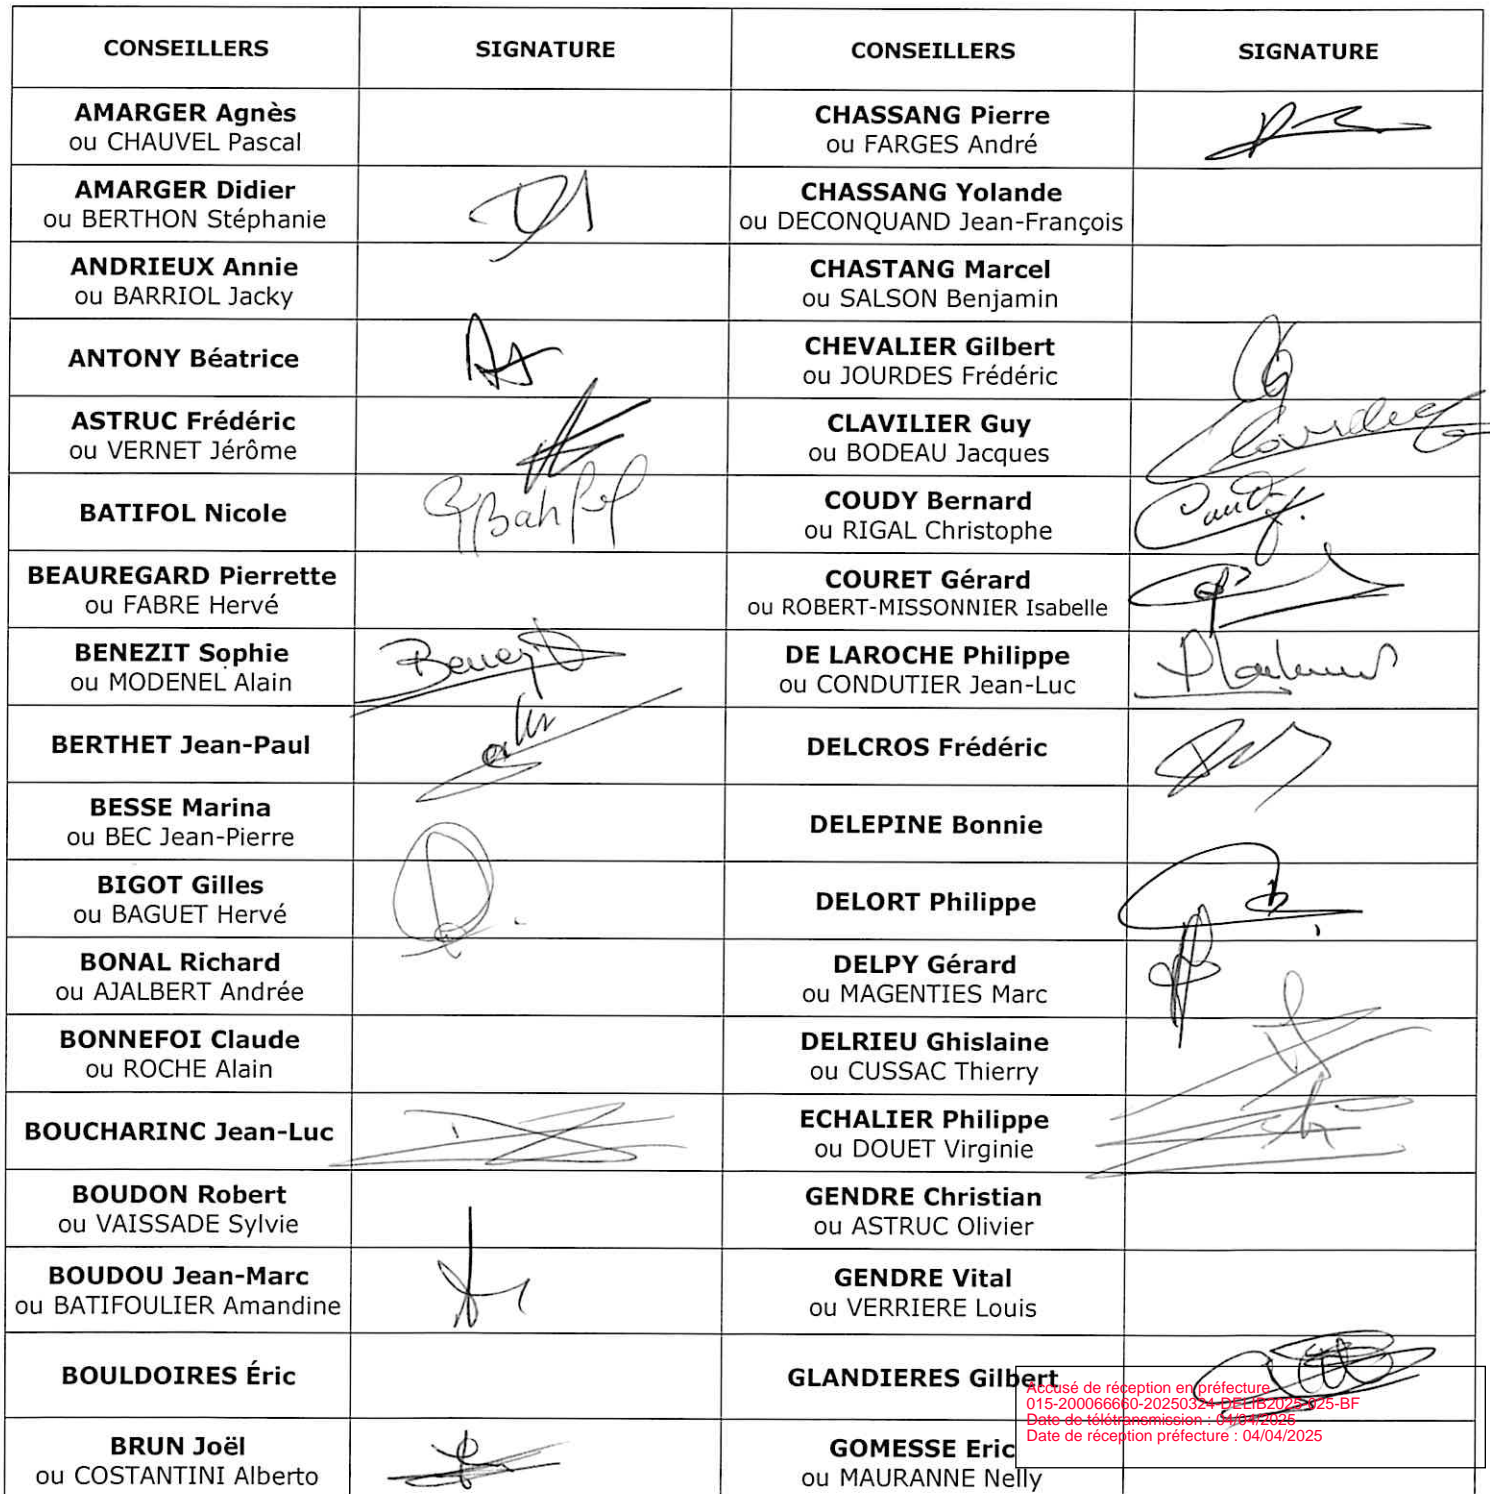 CONSEILLERS SIGNATURE CONSEILLERS SIGNATURE
AMARGER Agnès
ou CHAUVEL Pascal
CHASSANG Pierre
ou FARGES André
AMARGER Didier
ou BERTHON Stéphanie
CHASSANG Yolande
ou DECONQUAND Jean-François
ANDRIEUX Annie
ou BARRIOL Jacky
CHASTANG Marcel
ou SALSON Benjamin
ANTONY Béatrice
CHEVALIER Gilbert
ou JOURDES Frédéric
ASTRUC Frédéric
ou VERNET Jérôme
CLAVILIER Guy
ou BODEAU Jacques
BATIFOL Nicole
COUDY Bernard
ou RIGAL Christophe
BEAUREGARD Pierrette
ou FABRE Hervé
COURET Gérard
ou ROBERT-MISSONNIER Isabelle
BENEZIT Sophie
ou MODENEL Alain
Benezit
DE LAROCHE Philippe
ou CONDUTIER Jean-Luc
BERTHET Jean-Paul
DELCROS Frédéric
BESSE Marina
ou BEC Jean-Pierre
DELEPINE Bonnie
BIGOT Gilles
ou BAGUET Hervé
DELORT Philippe
BONAL Richard
ou AJALBERT Andrée
DELPY Gérard
ou MAGENTIES Marc
BONNEFOI Claude
ou ROCHE Alain
DELRIEU Ghislaine
ou CUSSAC Thierry
BOUCHARINC Jean-Luc
ECHALIER Philippe
ou DOUET Virginie
BOUDON Robert
ou VAISSADE Sylvie
GENDRE Christian
ou ASTRUC Olivier
BOUDOU Jean-Marc
ou BATIFOULIER Amandine
GENDRE Vital
ou VERRIERE Louis
BOULDOIRES Éric
GLANDIERES Gilbert
Accusé de réception en préfecture
015-200066660-20250324-DELIB2025-025-BF
Date de télétransmission : 04/04/2025
Date de réception préfecture : 04/04/2025
BRUN Joël
ou COSTANTINI Alberto
GOMESSE Eric
ou MAURANNE Nelly